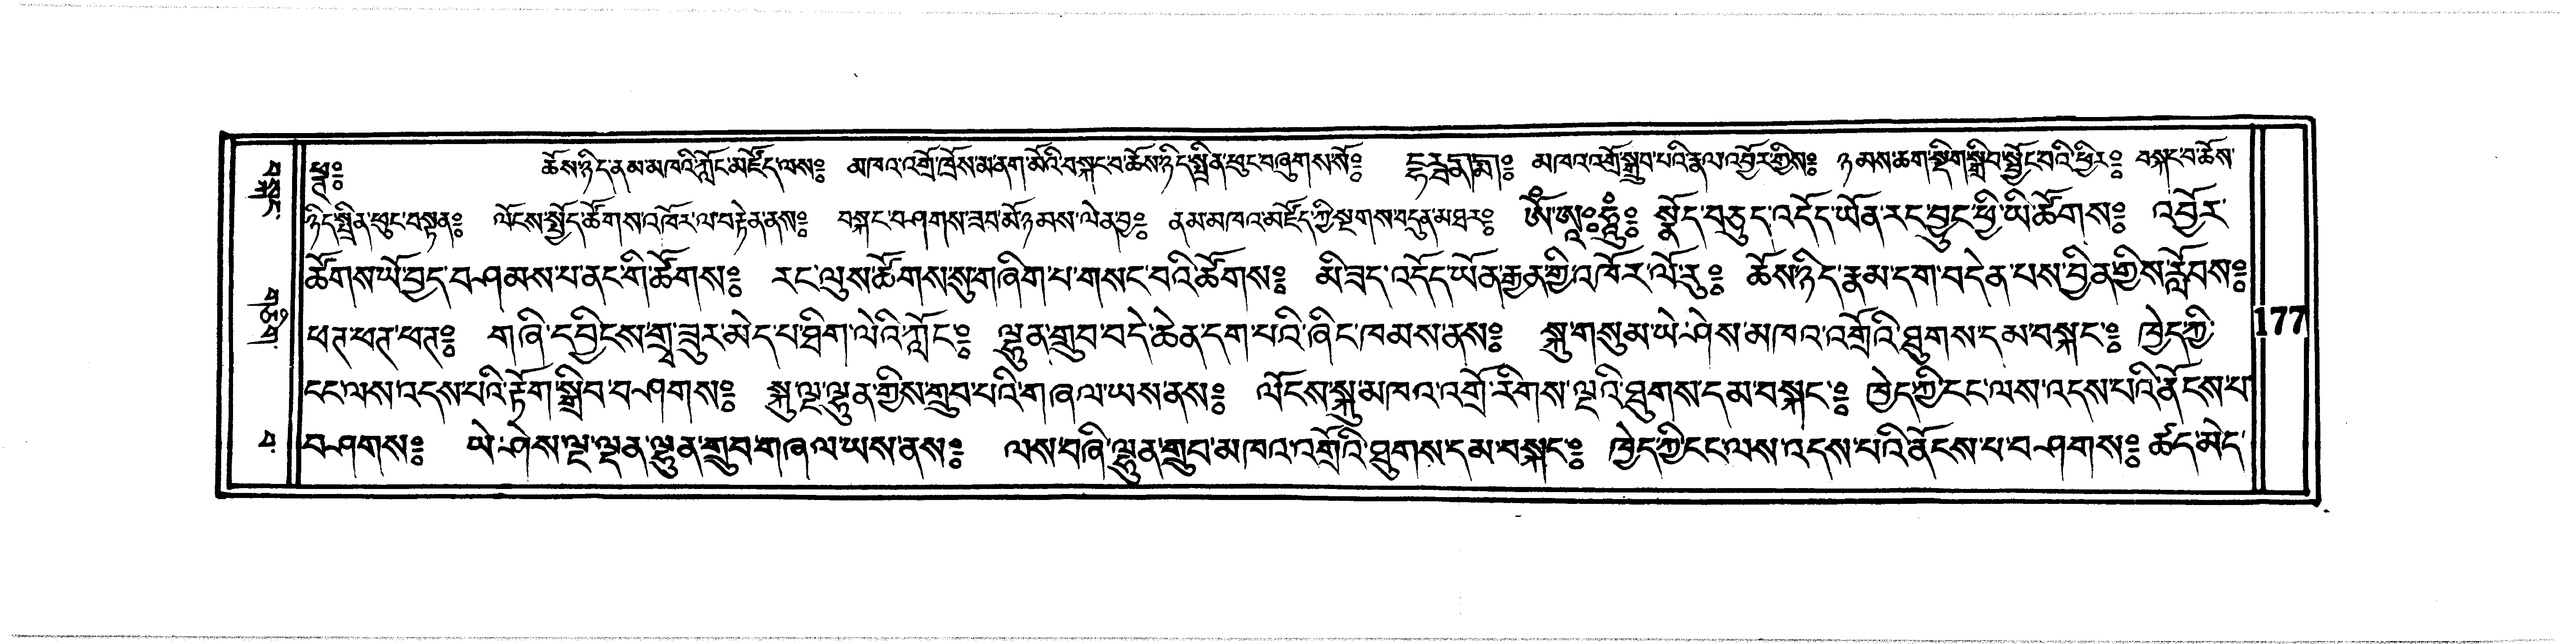 ཕཊ༔ ཆོས་ཉིད་ནམ་མཁའི་ཀློང་མཛོད་ལས༔ མཁའ་འགྲོ་ཁྲོས་མ་ནག་མོའི་བསྐང་བ་ཆོས་ཉིད་སྤྲིན་ཕུང་བཞུགས་སོ༔ མཁའ་འགྲོ་སྒྲུབ་པའི་རྣལ་འབྱོར་གྱིས༔ ཉམས་ཆག་སྡིག་སྒྲིབ་སྦྱོང་བའི་ཕྱིར༔ བསྐང་བ་ཆོས་
ཉིད་སྤྲིན་ཕུང་བསྟན༔ ལོངས་སྤྱོད་ཚོགས་འཁོར་ལ་བརྟེན་ནས༔ བསྐང་བཤགས་ཟབ་མོ་ཉམས་ལེན་བྱ༔ ནམ་མཁའ་མཛོད་ཀྱི་སྔགས་བདུན་མཐར༔ ཨོཾ་ཨཱཿཧཱུྃ༔ སྣོད་བཅུད་འདོད་ཡོན་རང་བྱུང་ཕྱི་ཡི་ཚོགས༔ འབྱོར་
ཚོགས་ཡོ་བྱད་བཤམས་པ་ནང་གི་ཚོགས༔ རང་ལུས་ཚོགས་སུ་གཞིག་པ་གསང་བའི་ཚོགས༔ མི་ཟད་འདོད་ཡོན་རྒྱན་གྱི་འཁོར་ལོ་རུ༔ ཆོས་ཉིད་རྣམ་དག་བདེན་པས་བྱིན་གྱིས་རློབས༔
ཕཊ་ཕཊ་ཕཊ༔ གཞི་དབྱིངས་གྲྭ་ཟུར་མེད་པ་ཐིག་ལེའི་ཀློང༔ ལྷུན་གྲུབ་བདེ་ཆེན་དག་པའི་ཞིང་ཁམས་ནས༔ སྐུ་གསུམ་ཡེ་ཤེས་མཁའ་འགྲོའི་ཐུགས་དམ་བསྐང༔ ཁྱེད་ཀྱི་
ངང་ལས་འདས་པའི་རྟོག་སྒྲིབ་བཤགས༔ སྐུ་ལྔ་ལྷུན་གྱིས་གྲུབ་པའི་གཞལ་ཡས་ནས༔ ལོངས་སྐུ་མཁའ་འགྲོ་རིགས་ལྔའི་ཐུགས་དམ་བསྐང༔ ཁྱེད་ཀྱི་ངང་ལས་འདས་པའི་ནོངས་པ་
བཤགས༔ ཡེ་ཤེས་ལྔ་ལྡན་ལྷུན་གྲུབ་གཞལ་ཡས་ནས༔ ལས་བཞི་ལྷུན་གྲུབ་མཁའ་འགྲོའི་ཐུགས་དམ་བསྐང༔ ཁྱེད་ཀྱི་ངང་ལས་འདས་པའི་ནོངས་པ་བཤགས༔ ཚད་མེད་
177